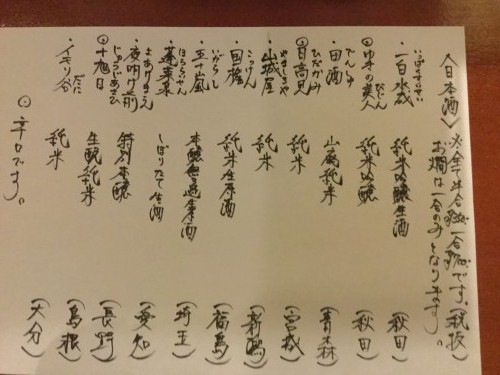 〈日本酒〉※全て半合 一合 です。(税抜)
お燗は一合のみとなります。
いっぱくすいせい
・一白水成 純米吟醸生酒 (秋田)
びじん
◎ゆきの美人 純米吟醸 (秋田)
でんしゅ
・田酒 山廃純米 (青森)
ひだかみ
◎日高見 純米 (宮城)
やましろや
・山城屋 純米 (新潟)
こっけん
・国権 純米生原酒 (福島)
いがらし
・五十嵐 本醸無濾過生原酒 (埼玉)
・蓬莱泉 しぼりたて生酒 (愛知)
よあけまえ
・夜明け前 特別本醸 (長野)
じゅうじあさひ
◎十旭日 生酛純米 (島根)
だに
・イモリ谷 純米 (大分)
◎辛口です。